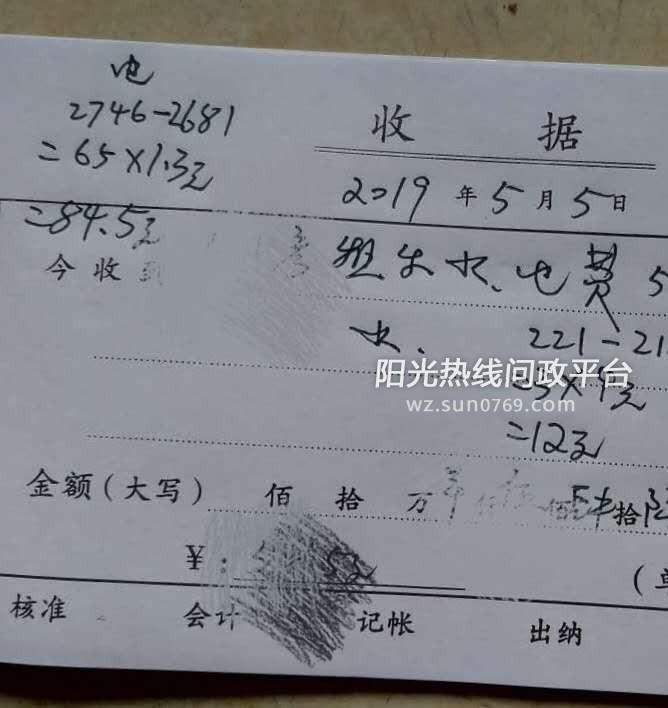 电
2746-2681
=65×1.3元
=84.5元
收 据
2019 年 5 月 5 日
今收到
水、电费 5
水、
221-21
=3×9元
=12元
阳光热线问政平台
wz.sun0769.com
金额(大写) 佰 拾 万 仟 佰 拾
¥:
核准 会计 记帐 出纳